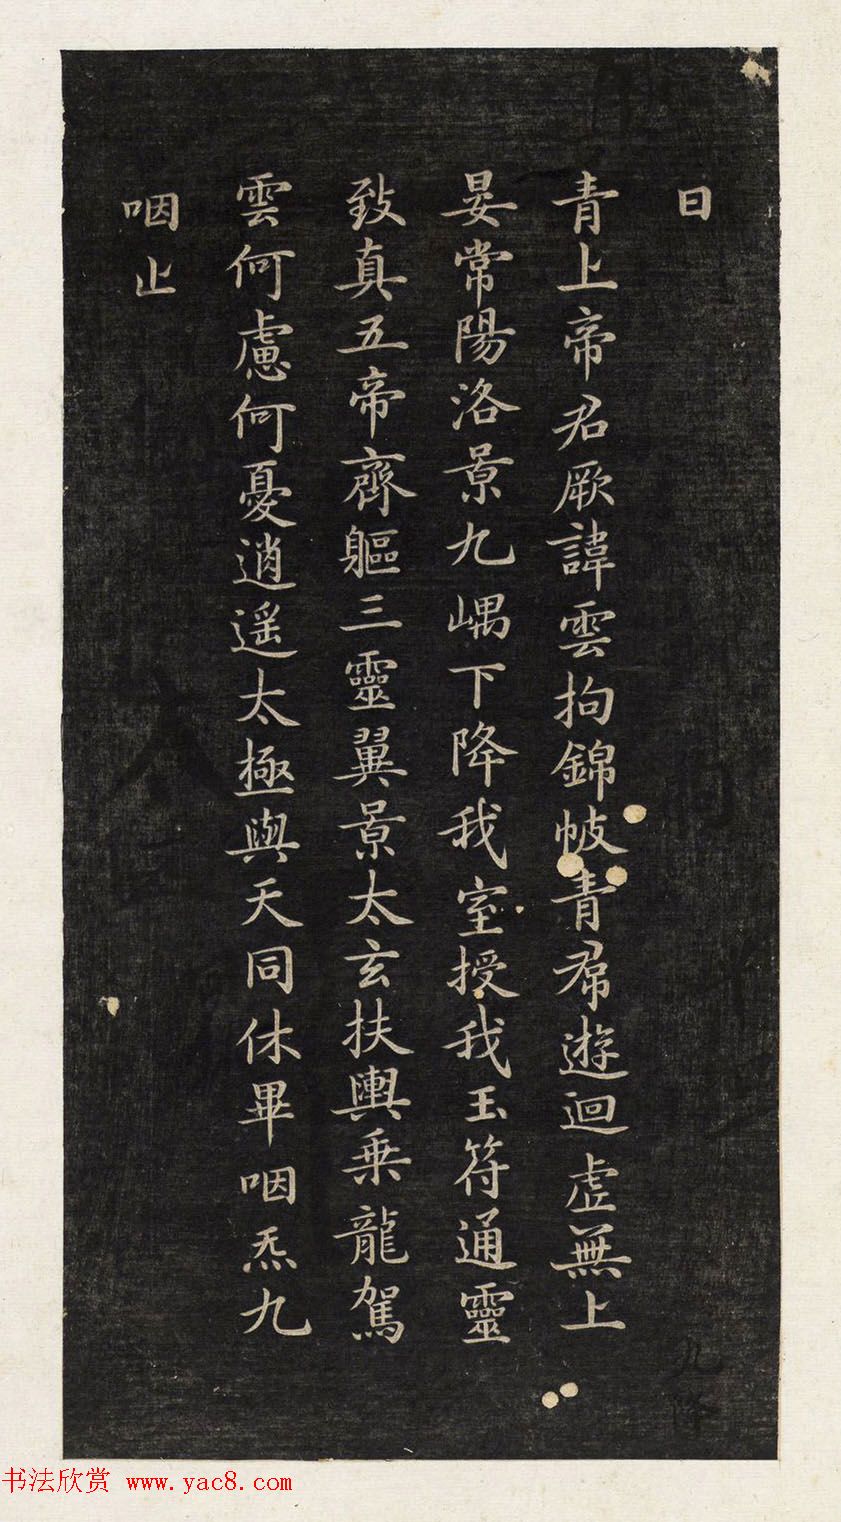 曰
青上帝君厥諱雲拘錦帔青帬遊迴虛無上
晏常陽洛景九嵎下降我室授我玉符通靈
致真五帝齊軀三靈翼景太玄扶輿乗龍駕
雲何慮何憂逍遥太極與天同休畢咽炁九
咽止
书法欣赏 www.yac8.com